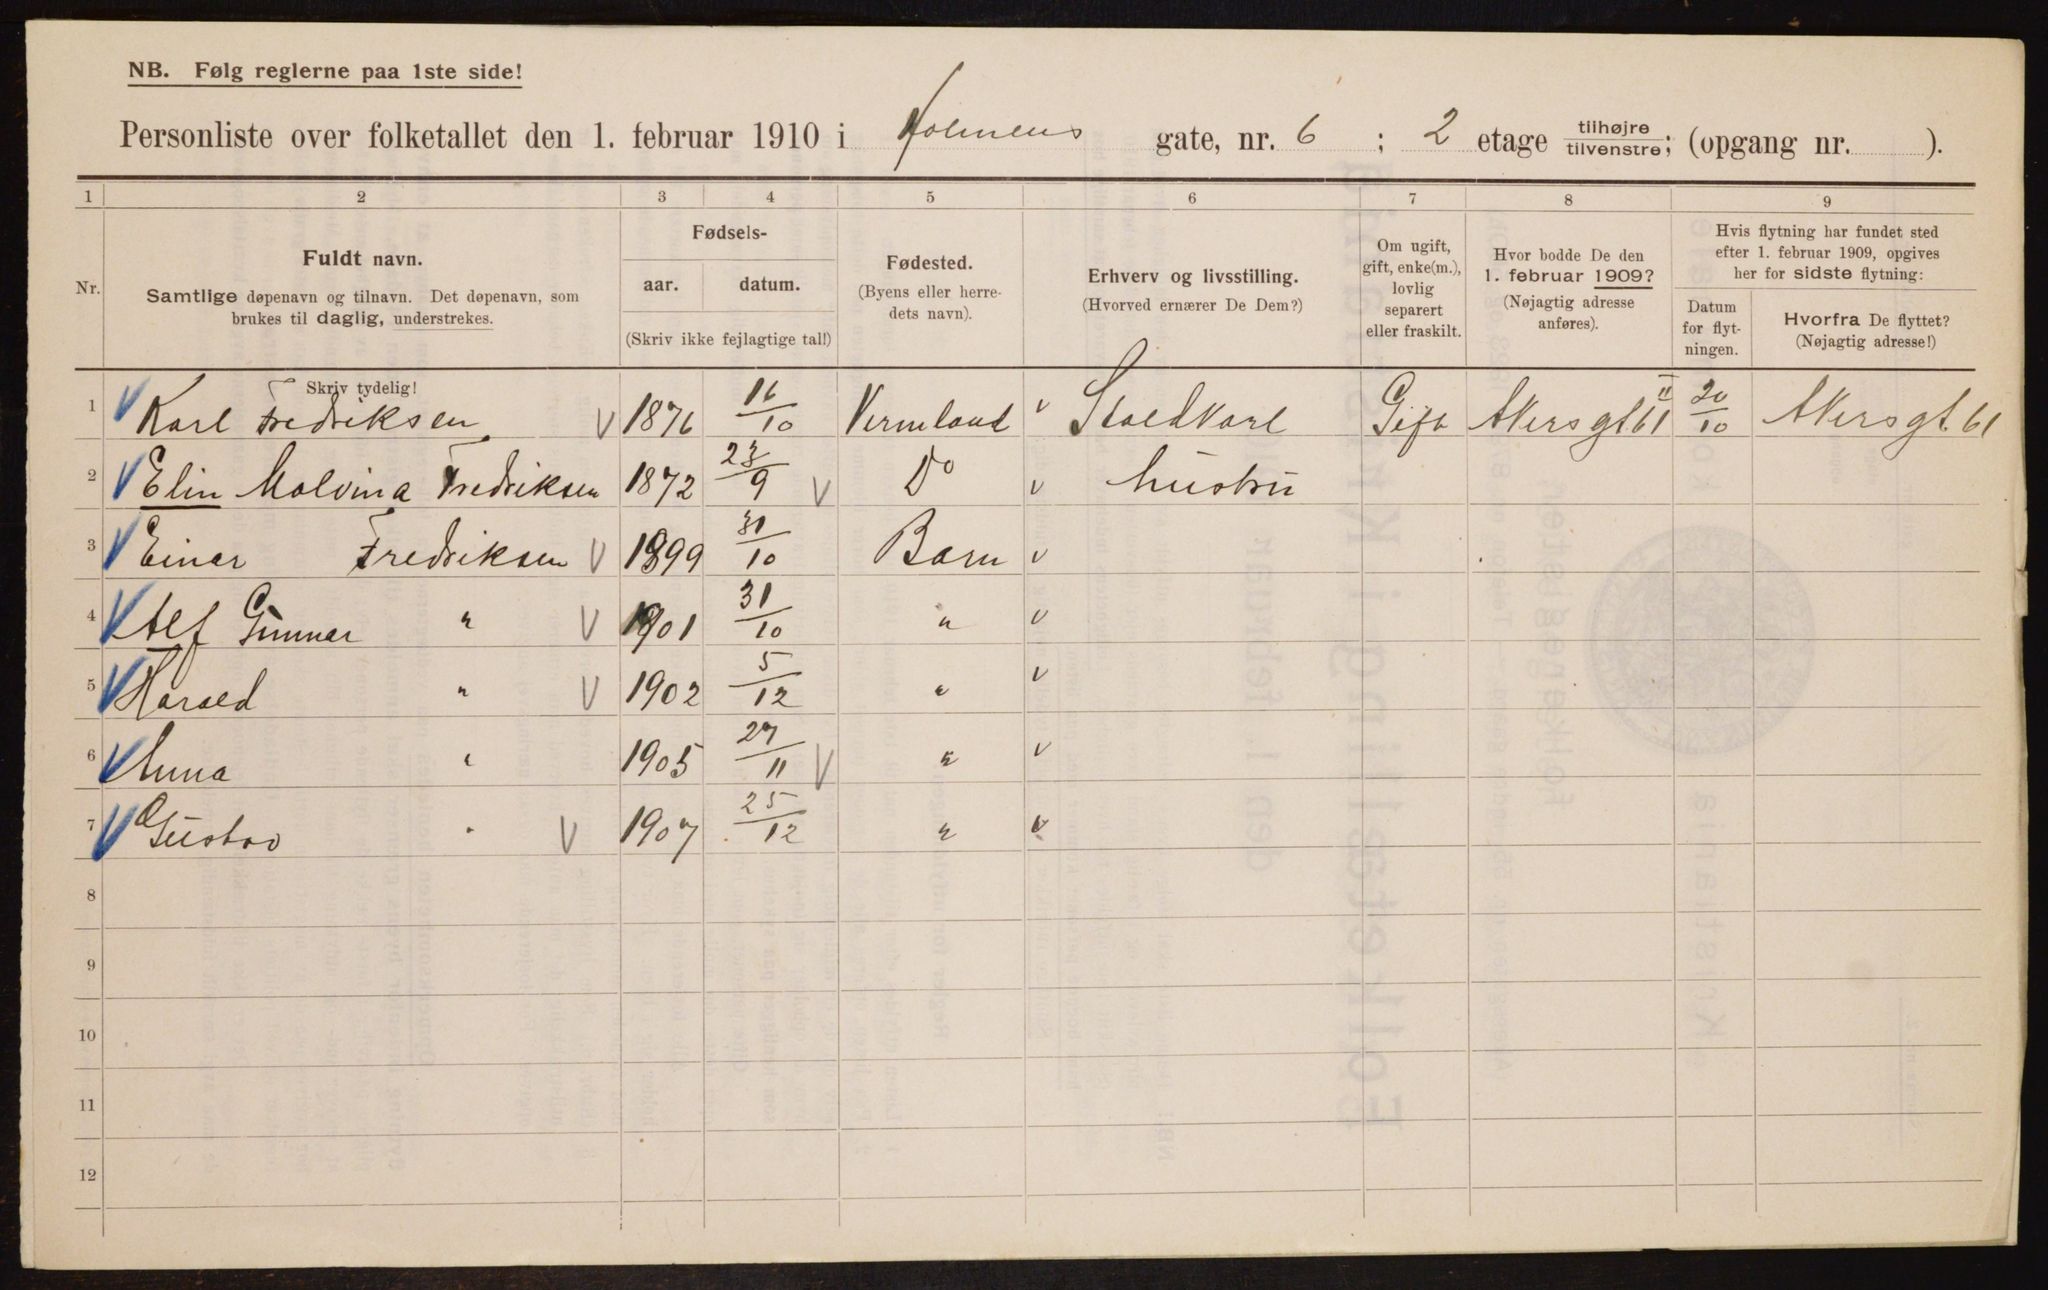 NB. Følg reglerne paa 1ste side!
Personliste over folketallet den 1. februar 1910 i Holmens gate, nr. 6 ; 2 etage tilhøjre/tilvenstre; (opgang nr. ).
1 2 3 4 5 6 7 8 9
Nr.
Fuldt navn.
Samtlige døpenavn og tilnavn. Det døpenavn, som
brukes til daglig, understrekes.
Skriv tydelig!
Fødsels-
aar. datum.
(Skriv ikke fejlagtige tal!)
Fødested.
(Byens eller herre-
dets navn).
Erhverv og livsstilling.
(Hvorved ernærer De Dem?)
Om ugift,
gift, enke(m.),
lovlig
separert
eller fraskilt.
Hvor bodde De den
1. februar 1909?
(Nøjagtig adresse
anføres).
Hvis flytning har fundet sted
efter 1. februar 1909, opgives
her for sidste flytning:
Datum
for flyt-
ningen.
Hvorfra De flyttet?
(Nøjagtig adresse!)
1 Karl Fredriksen 1876 16/10 Vermland Staldkarl Gift Akersgt. 61 II 20/10 Akersgt. 61
2 Elin Malvina Fredriksen 1872 23/9 Do hustru
3 Einar Fredriksen 1899 31/10 Barn
4 Alf Gunnar " 1901 31/10 "
5 Harald " 1902 5/12 "
6 Anna " 1905 27/11 "
7 Gustav " 1907 25/12 "
8
9
10
11
12